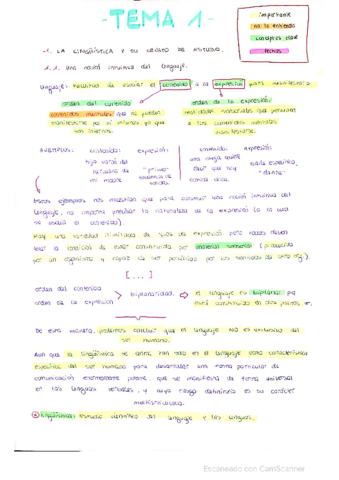 - TEMA 1 -
importante
no lo entiendo
conceptos clave
fechas
-1. LA LINGÜÍSTICA Y SU OBJETO DE ESTUDIO.
1.1. Una noción intuitiva del lenguaje.
Lenguaje: facultad de asociar el contenido a la expresión para manifestarlo
orden del contenido:
contenidos mentales que no pueden
manifestarse por sí mismos ya que
son internos.
orden de la expresión:
realidades materiales que permiten
a los contenidos mentales
manifestarse.
EJEMPLOS:
contenido:
hijo varón del
hermano de
mi madre
expresión:
"primo"
secuencia de
sonidos.
contenido:
una abeja quiere
que hay
comida cerca.
expresión:
baile específico,
"danza"
Estos ejemplos nos muestran que para construir una noción intuitiva del
lenguaje, no importa precisar la naturaleza de la expresión (a la cual
se asocia el contenido).
Hay una variedad ilimitada de tipos de expresión pero todos deben
tener la condición de estar constituida por material sensorial (producida
por un organismo y capaz de ser percibida por los sentidos de otro org.).
[...]
orden del contenido
orden de la expresión
biplanaridad.
el lenguaje es biplanar pq
está constituido en dos planos.
De esta manera, podemos concluir que el lenguaje no es exclusivo del
ser humano.
Aun que la lingüística se centra tan solo en el lenguaje como característica
específica del ser humano para desarrollar una forma particular de
comunicación enormemente potente, que se manifiesta de forma universal
en las lenguas verbales, y cuyo rasgo definitorio es su carácter
Lingüística: estudio científico del lenguaje y las lenguas.
Escaneado con CamScanner